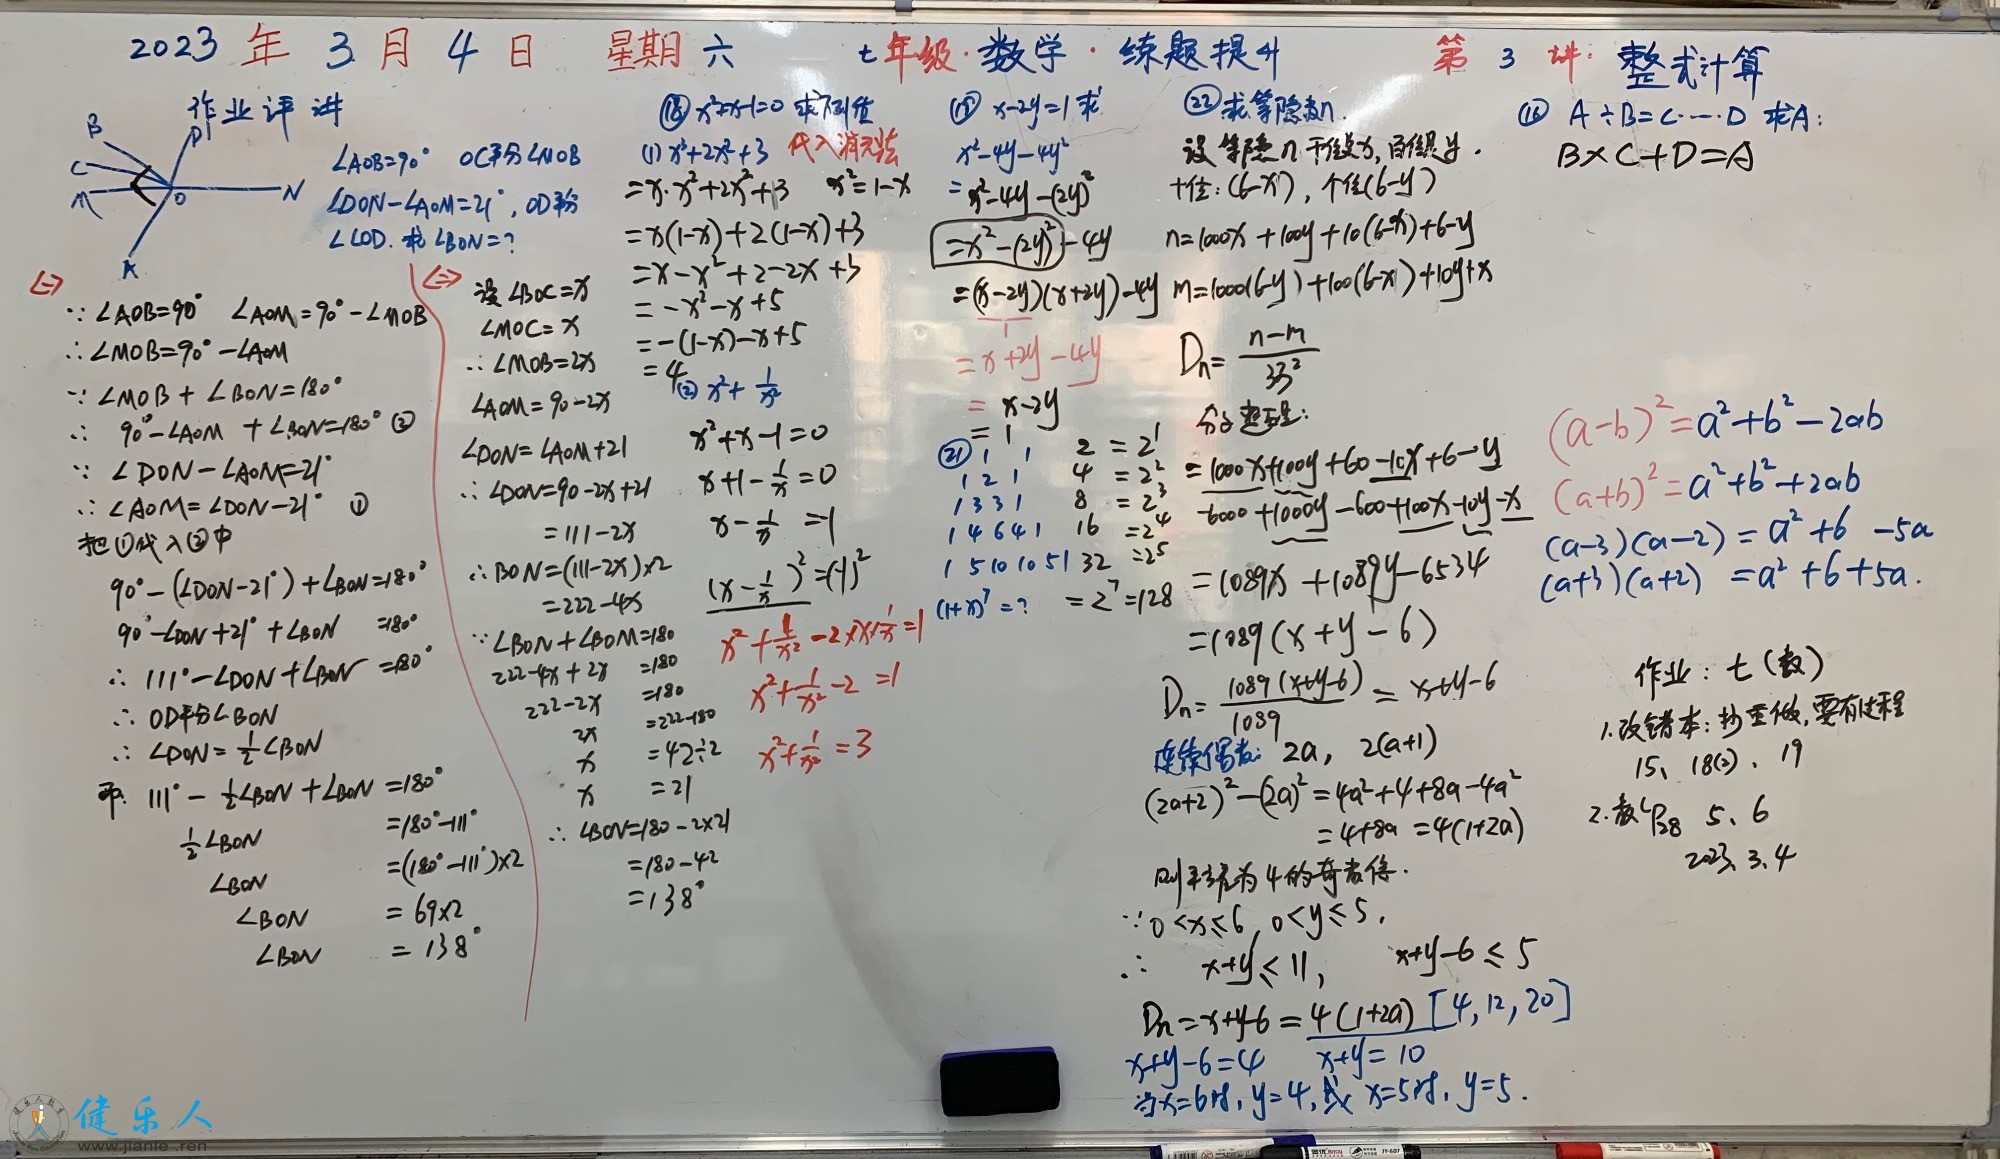 2023 年 3 月 4 日 星期六 七年级·数学·练题提升 第 3 讲: 整式计算
作业评讲
B
C
M
D
O
N
A
∠AOB=90° OC平分∠MOB
∠DON-∠AOM=21°, OD平分
∠COD. 求∠BON=?
<一>
∵ ∠AOB=90° ∠AOM=90°-∠MOB
∴ ∠MOB=90°-∠AOM
∵ ∠MOB + ∠BON=180°
∴ 90°-∠AOM + ∠BON=180° ②
∵ ∠DON-∠AOM=21°
∴ ∠AOM=∠DON-21° ①
把①代入②中
90°-(∠DON-21°)+∠BON=180°
90°-∠DON+21°+∠BON =180°
∴ 111°-∠DON+∠BON =180°
∴ OD平分∠BON
∴ ∠DON=½∠BON
即. 111°-½∠BON+∠BON =180°
½∠BON =180°-111°
∠BON =(180°-111°)×2
∠BON = 69×2
∠BON = 138°
<二>
设∠BOC=x
∠MOC=x
∴ ∠MOB=2x
∠AOM=90-2x
∠DON=∠AOM+21
∴ ∠DON=90-2x+21
=111-2x
∴ BON=(111-2x)×2
=222-4x
∵ ∠BON+∠BOM=180
222-4x+2x =180
222-2x =180
2x =222-180
x =42÷2
x =21
∴ ∠BON=180-2×21
=180-42
=138°
⑱ x²+x-1=0 求下列值
(1) x³+2x²+3 代入消元法
=x·x²+2x²+3 x²=1-x
=x(1-x)+2(1-x)+3
=x-x²+2-2x+3
=-x²-x+5
=-(1-x)-x+5
=4
(2) x²+1/x²
x²+x-1=0
x+1-1/x=0
x-1/x =-1
(x-1/x)²=(-1)²
x²+1/x²-2×x×1/x=1
x²+1/x²-2 =1
x²+1/x²=3
⑲ x-2y=1 求
x²-4y-4y²
=x²-4y-(2y)²
=x²-(2y)²-4y
=(x-2y)(x+2y)-4y
1
=x+2y-4y
= x-2y
= 1
㉑ 1 1 2 =2¹
1 2 1 4 =2²
1 3 3 1 8 =2³
1 4 6 4 1 16 =2⁴
1 5 10 10 5 1 32 =2⁵
(1+x)⁷=? =2⁷=128
㉒ 求等隐数n.
设等隐n千位是x, 百位是y.
十位: (6-x), 个位(6-y)
n=1000x+100y+10(6-x)+6-y
m=1000(6-y)+100(6-x)+10y+x
Dn=(n-m)/33²
=1000x+100y+60-10x+6-y
-6000+1000y-600+100x-10y-x
=1089x+1089y-6534
=1089(x+y-6)
Dn=1089(x+y-6)/1089=x+y-6
连续偶数: 2a, 2(a+1)
(2a+2)²-(2a)²=4a²+4+8a-4a²
=4+8a=4(1+2a)
则平方差为4的奇数倍.
∵ 0<x≤6, 0<y≤5,
∴ x+y≤11, x+y-6≤5
Dn=x+y-6=4(1+2a) [4,12,20]
x+y-6=4 x+y=10
当x=6时, y=4, 或 x=5时, y=5.
⑯ A÷B=C…D 求A:
B×C+D=A
(a-b)²=a²+b²-2ab
(a+b)²=a²+b²+2ab
(a-3)(a-2)=a²+6 -5a
(a+3)(a+2) =a²+6+5a.
作业: 七(数)
1.改错本: 抄重做, 要有过程
15、18(2)、19
2.教P28 5、6
2023、3、4
健乐人
www.jianle.ren